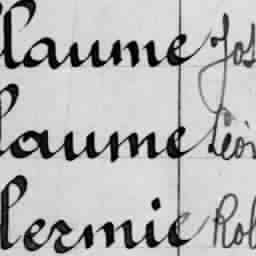 llaume Jos
laume Léon
lermie Rob